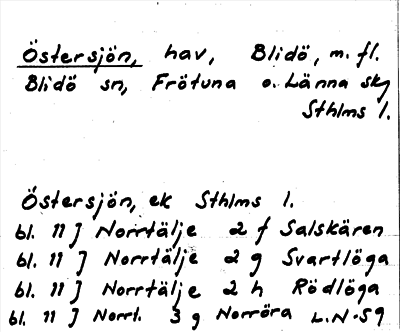 Östersjön, hav, Blidö, m. fl.
Blidö sn, Frötuna o. Länna skg
Sthlms l.
Östersjön, ek Sthlms l.
bl. 11 J Norrtälje 2 f Salskären
bl. 11 J Norrtälje 2 g Svartlöga
bl. 11 J Norrtälje 2 h Rödlöga
bl. 11 J Norrt. 3 g Norröra L.N-59